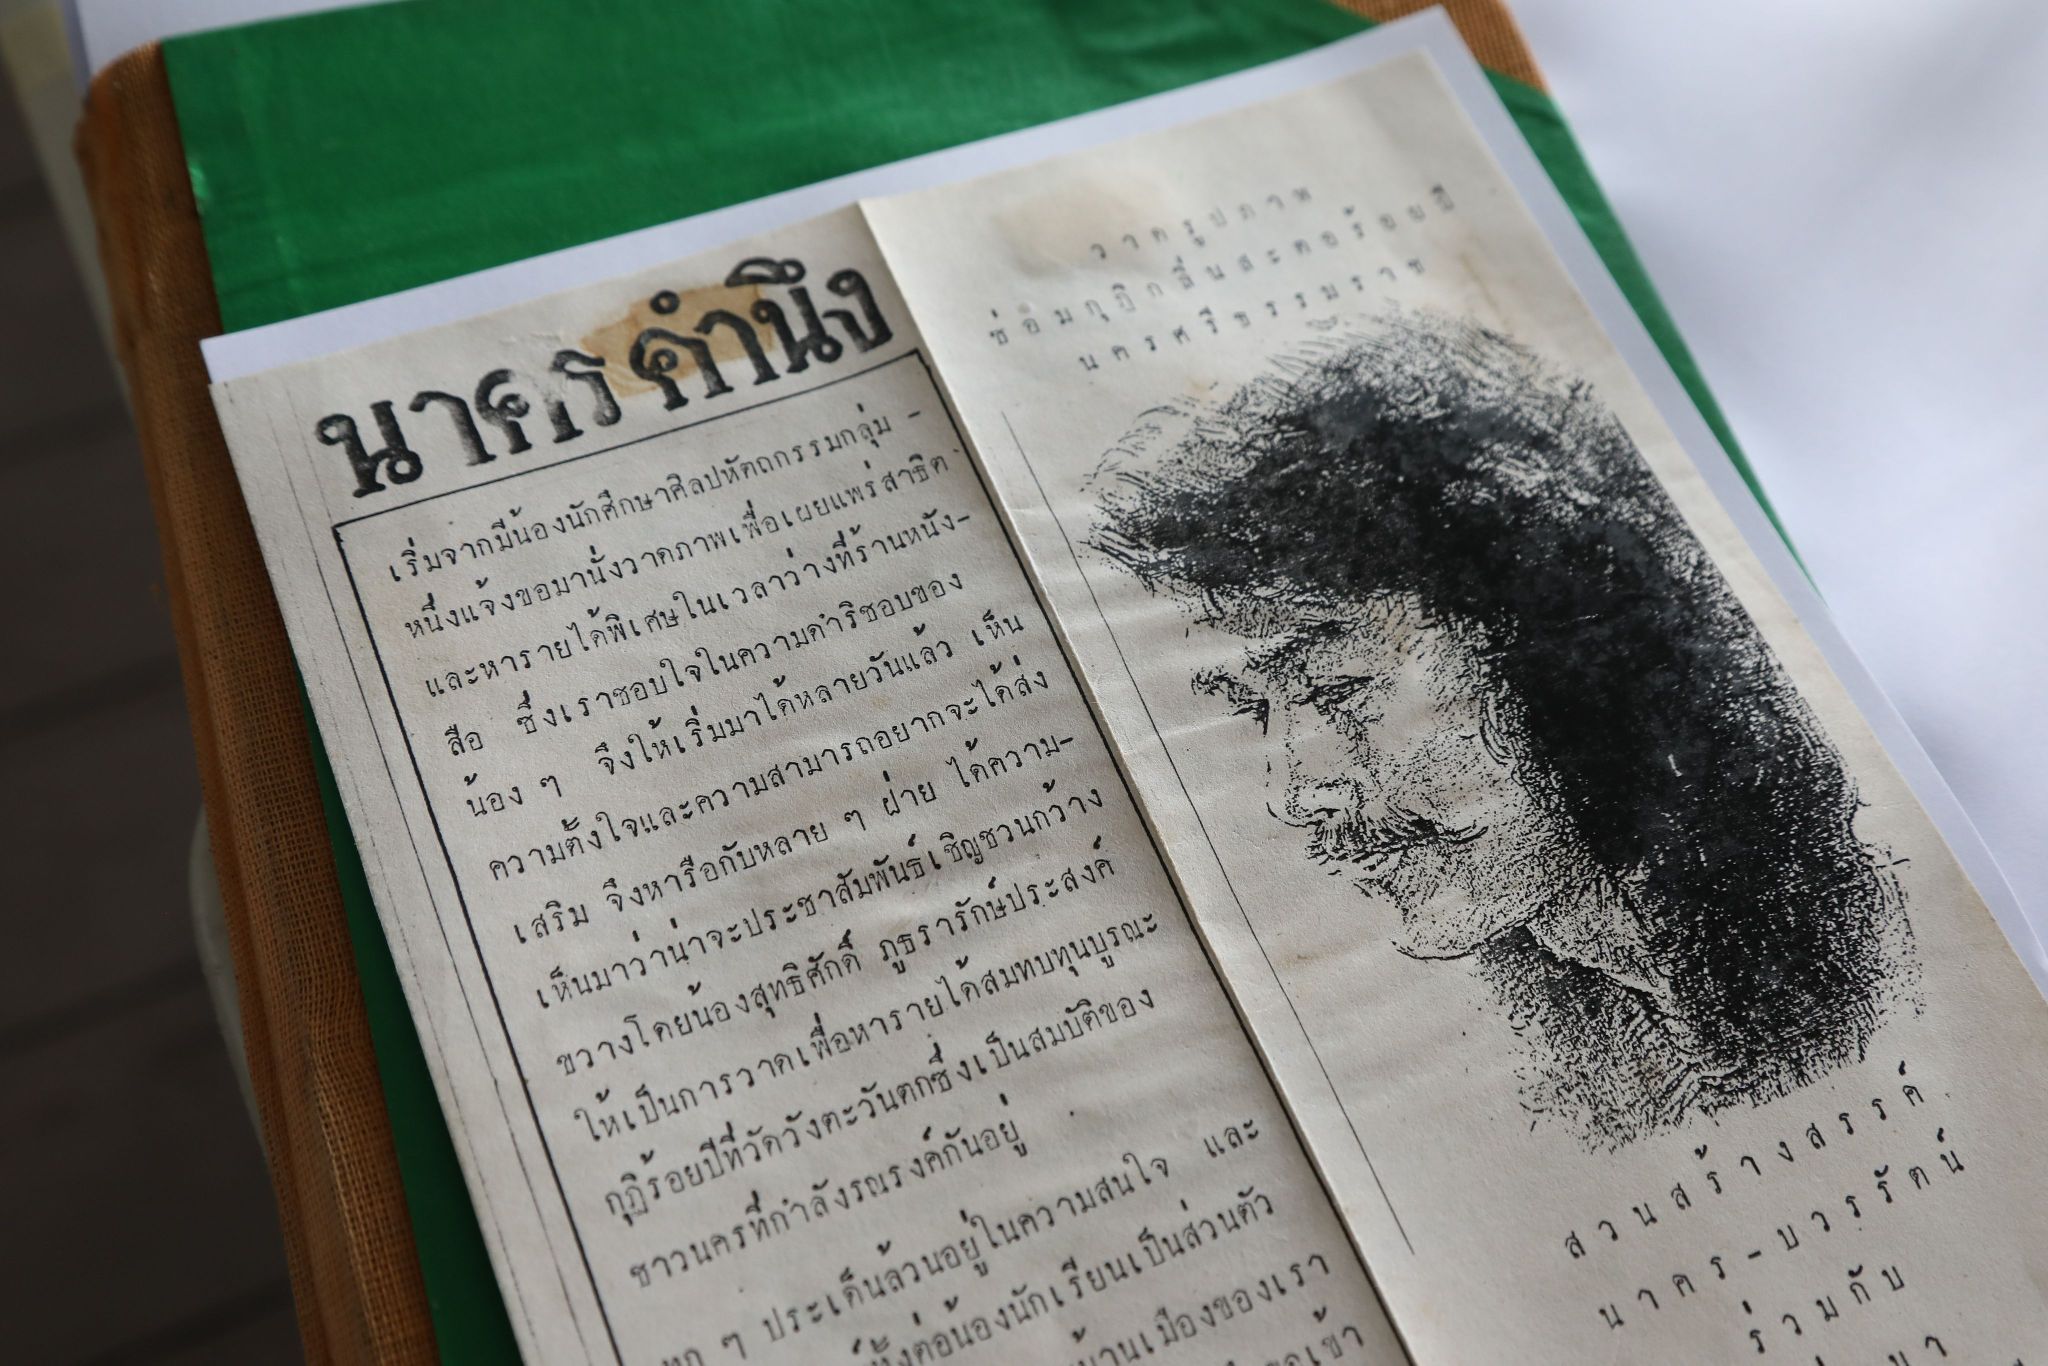 นาคร คำนึง
เริ่มจากมีน้องนักศึกษาศิลปหัตถกรรมกลุ่ม -
หนึ่งแจ้งขอมานั่งวาดภาพเพื่อเผยแพร่สาธิต
และหารายได้พิเศษในเวลาว่างที่ร้านหนัง-
สือ ซึ่งเราชอบใจในความดำริชอบของ
น้อง ๆ จึงให้เริ่มมาได้หลายวันแล้ว เห็น
ความตั้งใจและความสามารถอยากจะได้ส่ง
เสริม จึงหารือกับหลาย ๆ ฝ่าย ได้ความ-
เห็นมาว่าน่าจะประชาสัมพันธ์เชิญชวนกว้าง
ขวางโดยน้องสุทธิศักดิ์ ภูธรารักษ์ประสงค์
ให้เป็นการวาดเพื่อหารายได้สมทบทุนบูรณะ
กุฏิร้อยปีที่วัดวังตะวันตกซึ่งเป็นสมบัติของ
ชาวนครที่กำลังรณรงค์กันอยู่
ทุก ๆ ประเด็นล้วนอยู่ในความสนใจ และ
ทั้งต่อน้องนักเรียนเป็นส่วนตัว
บ้านเมืองของเรา
วาดรูปภาพ
ซ่อมกุฏิกลิ่นสะตอร้อยปี
นครศรีธรรมราช
สวนสร้างสรรค์
นาคร-บวรรัตน์
ร่วมกับ